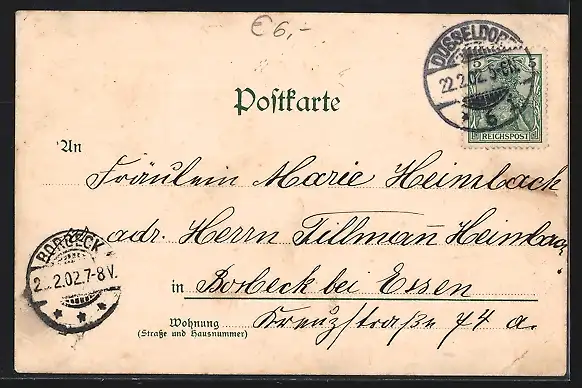 € 6,-
DÜSSELDORF
22.2.02. 5-6N.
5 5
REICHSPOST
Postkarte
An
Fräulein Marie Heimbach
adr. Herrn Tillmann Heimbach
BORBECK
2 .2.02.7-8V.
in Borbeck bei Essen
Wohnung
(Straße und Hausnummer)
Kreuzstraße 74 a.